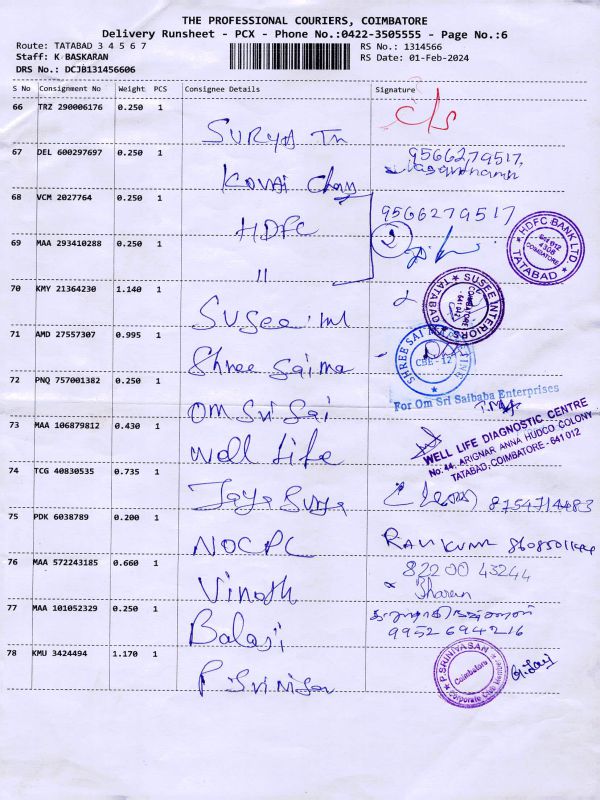 THE PROFESSIONAL COURIERS, COIMBATORE
Delivery Runsheet - PCX - Phone No.:0422-3505555 - Page No.:6
Route: TATABAD 3 4 5 6 7
RS No.: 1314566
Staff: K BASKARAN
RS Date: 01-Feb-2024
DRS No.: DCJB131456606
S No Consignment No Weight PCS Consignee Details Signature
66 TRZ 290006176 0.250 1
Surya Tn
C/S
67 DEL 600297697 0.250 1
Kovai Chay
9566279517,
68 VCM 2027764 0.250 1
HDFC
9566279517
HDFC BANK LTD
COIMBATORE
TATABAD
69 MAA 293410288 0.250 1
11
70 KMY 21364230 1.140 1
Susee ml
SUSEE INTERIORS
COIMBATORE
TATABAD
71 AMD 27557307 0.995 1
Shree Sai ma
SHREE SAI
CBE - 12
72 PNQ 757001382 0.250 1
Om Sri Sai
For Om Sri Saibaba Enterprises
73 MAA 106879812 0.430 1
Well Life
WELL LIFE DIAGNOSTIC CENTRE
No: 44, ARIGNAR ANNA HUDCO COLONY
TATABAD, COIMBATORE - 641 012
74 TCG 40830535 0.735 1
Jaya Surya
8754714483
75 PDK 6038789 0.200 1
NOCPC
Ravikumar
76 MAA 572243185 0.660 1
Vinoth
82200 43244
Bharan
77 MAA 101052329 0.250 1
Balaji
9952694216
78 KMU 3424494 1.170 1
P. Sri.Nisa
P.SRINIVASAN
Coimbatore
Corporate Club Member